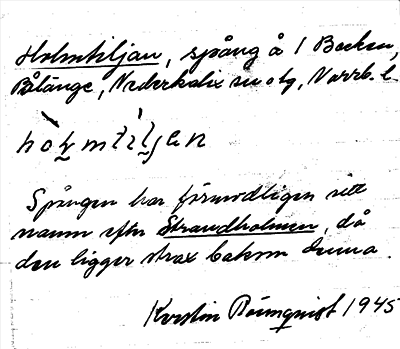 Holmtiljan, spång å 1 Backen,
Pålänge, Nederkalix sn o tg, Norrb. l.
hòl̥mtíl̥jan
Spången har förmodligen sitt
namn efter Strandholmen, då
den ligger strax bakom denna.
Kerstin Römquist 1945